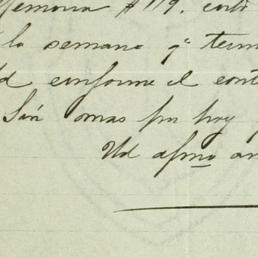 Memoria # 119. corte
la semana qe term
d conforme el cont
Sin omas por hoy
Ud afmo am